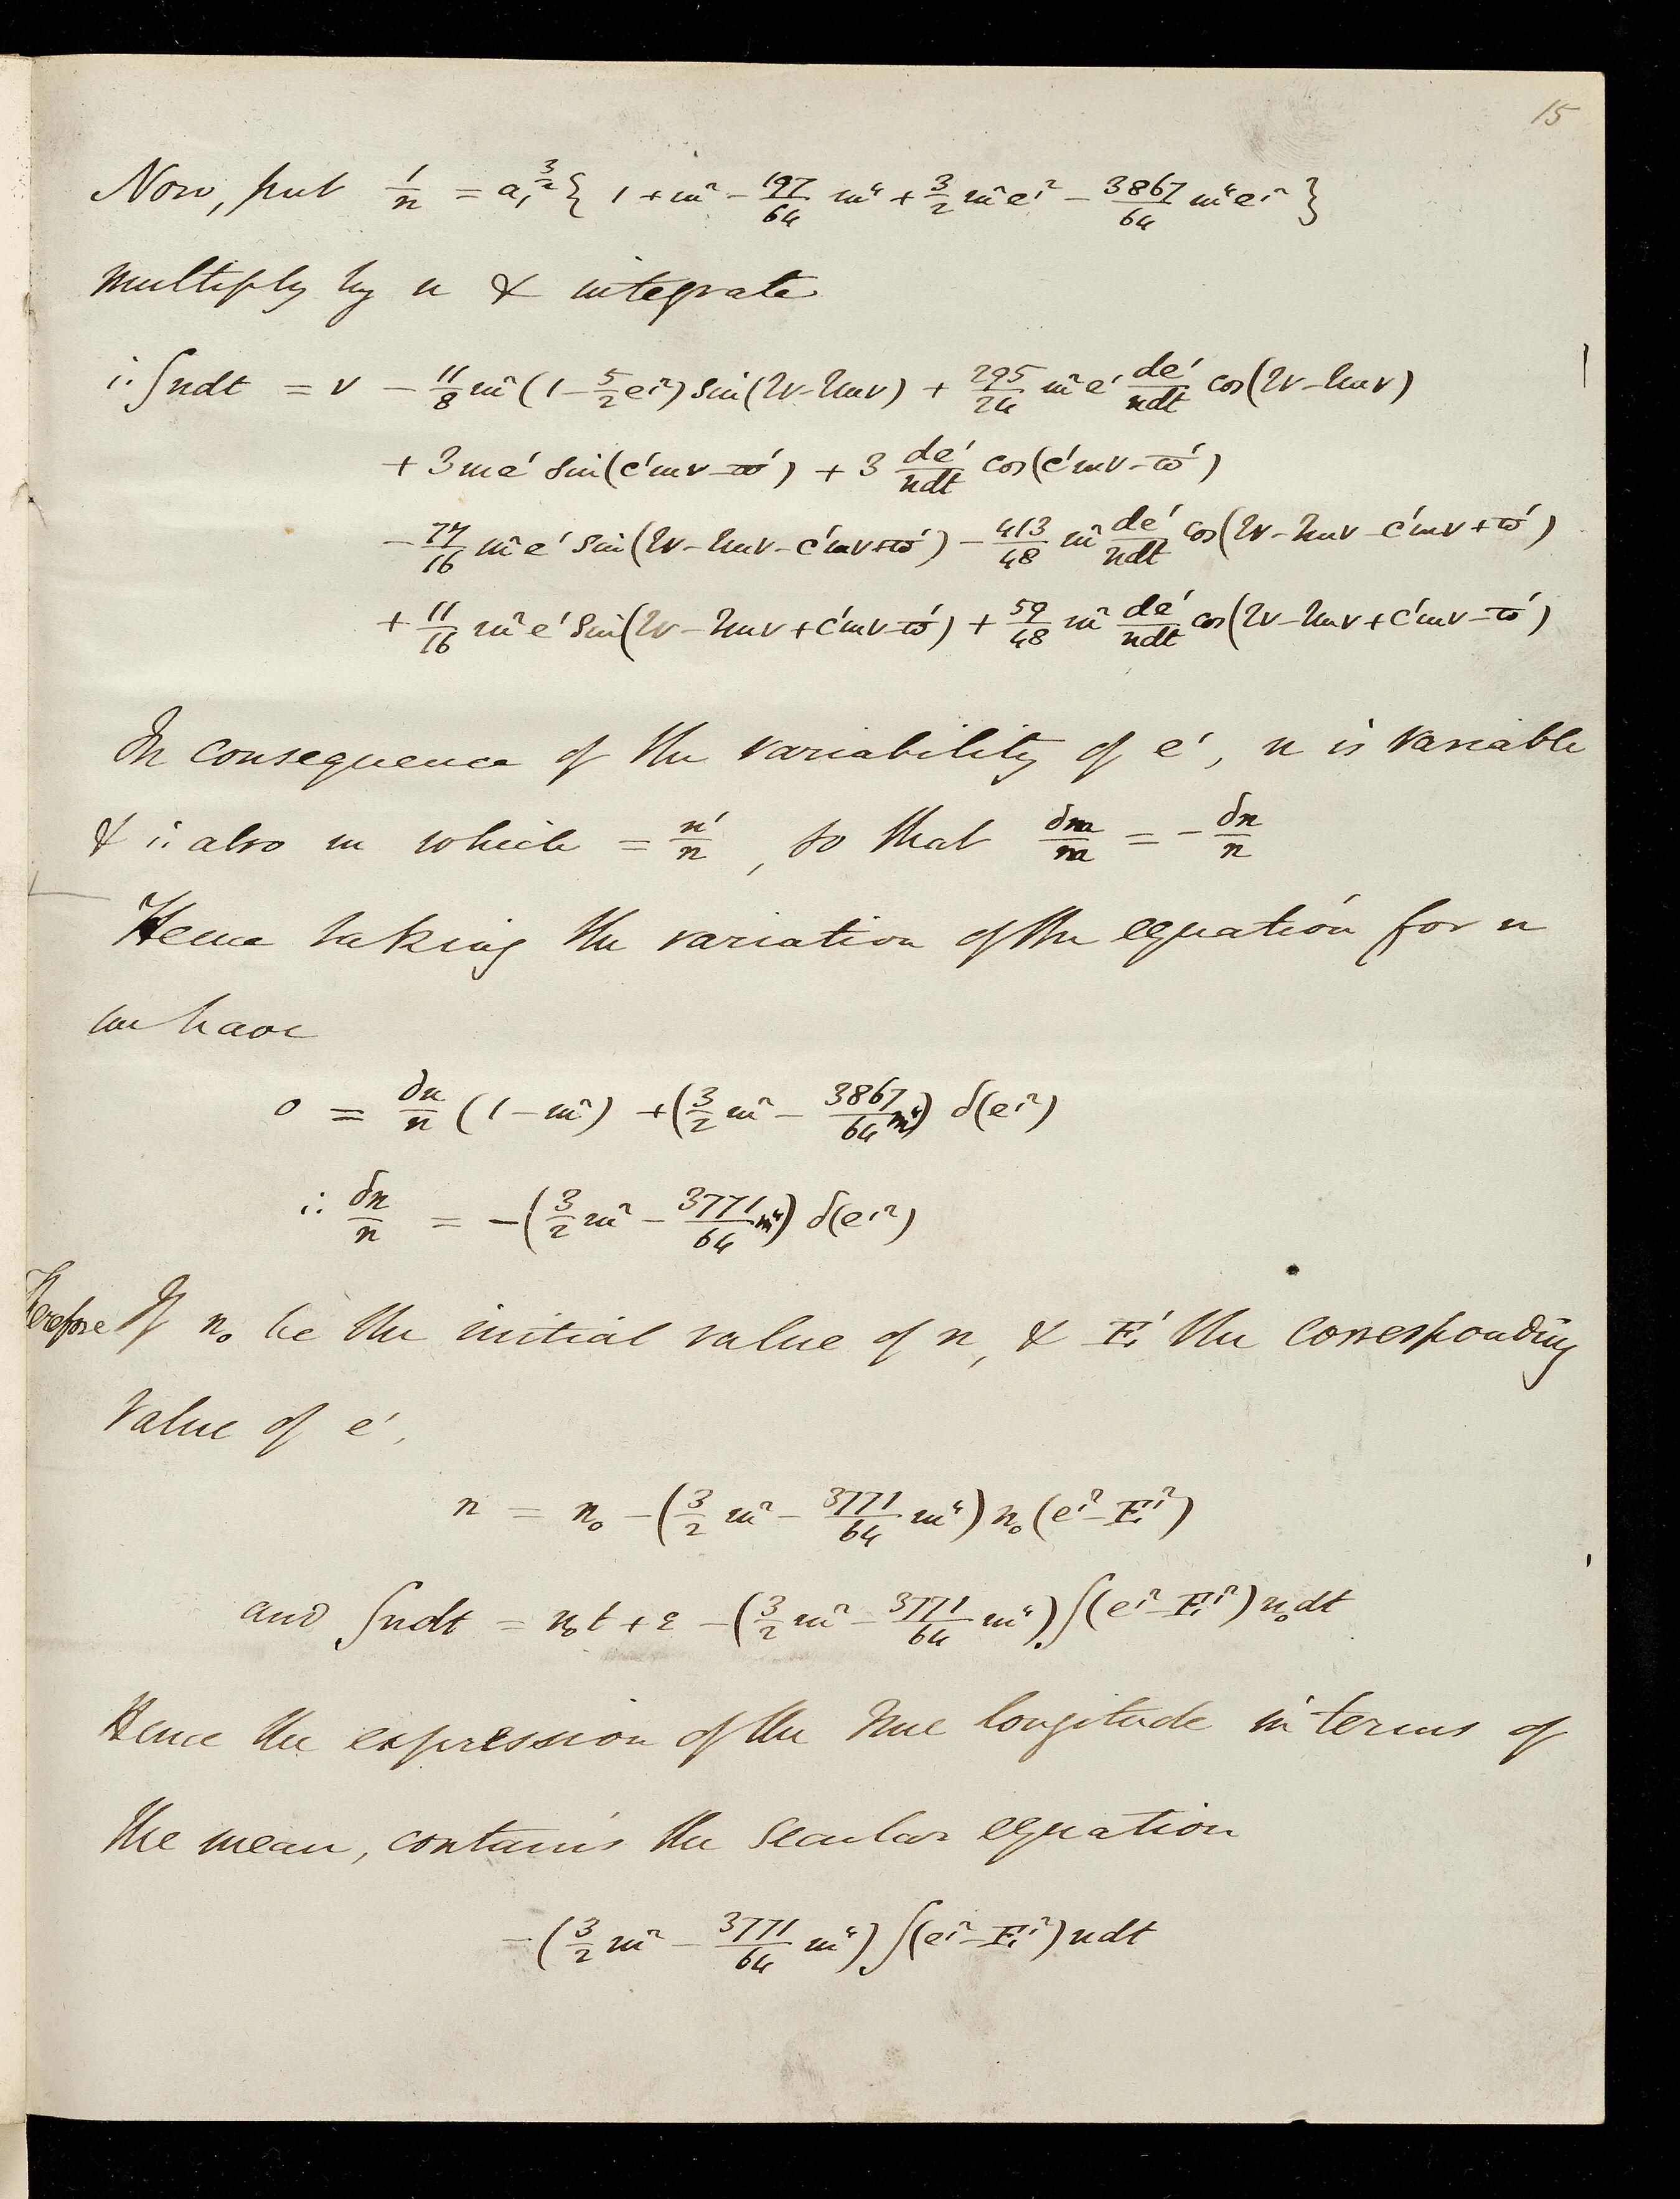 15
Now, put 1/n = a₁^(3/2) { 1 + m² − 197/64 m⁴ + 3/2 m²e′² − 3867/64 m⁴e′² }
Multiply by n & integrate
∴ ∫ndt = ν − 11/8 m² (1 − 5/2 e′²) sin(2ν − 2mν) + 295/24 m²e′ de′/ndt cos(2ν − 2mν)
+ 3me′ sin(c′mν − ϖ′) + 3 de′/ndt cos(c′mν − ϖ′)
− 77/16 m²e′ sin(2ν − 2mν − c′mν + ϖ′) − 413/48 m² de′/ndt cos(2ν − 2mν − c′mν + ϖ′)
+ 11/16 m²e′ sin(2ν − 2mν + c′mν − ϖ′) + 59/48 m² de′/ndt cos(2ν − 2mν + c′mν − ϖ′)
In consequence of the variability of e′, n is variable
& ∴ also m which = n′/n, so that δm/m = − δn/n
Hence taking the variation of the equation for n
we have
0 = δn/n (1 − m²) + (3/2 m² − 3867/64 m⁴) δ(e′²)
∴ δn/n = −(3/2 m² − 3771/64 m⁴) δ(e′²)
Therefore If n₀ be the initial value of n, & E′ the corresponding
value of e′,
n = n₀ − (3/2 m² − 3771/64 m⁴) n₀ (e′² − E′²)
and ∫ndt = n₀t + ε − (3/2 m² − 3771/64 m⁴) ∫(e′² − E′²) n₀dt
Hence the expression of the true longitude in terms of
the mean, contains the secular equation
− (3/2 m² − 3771/64 m⁴) ∫(e′² − E′²) ndt